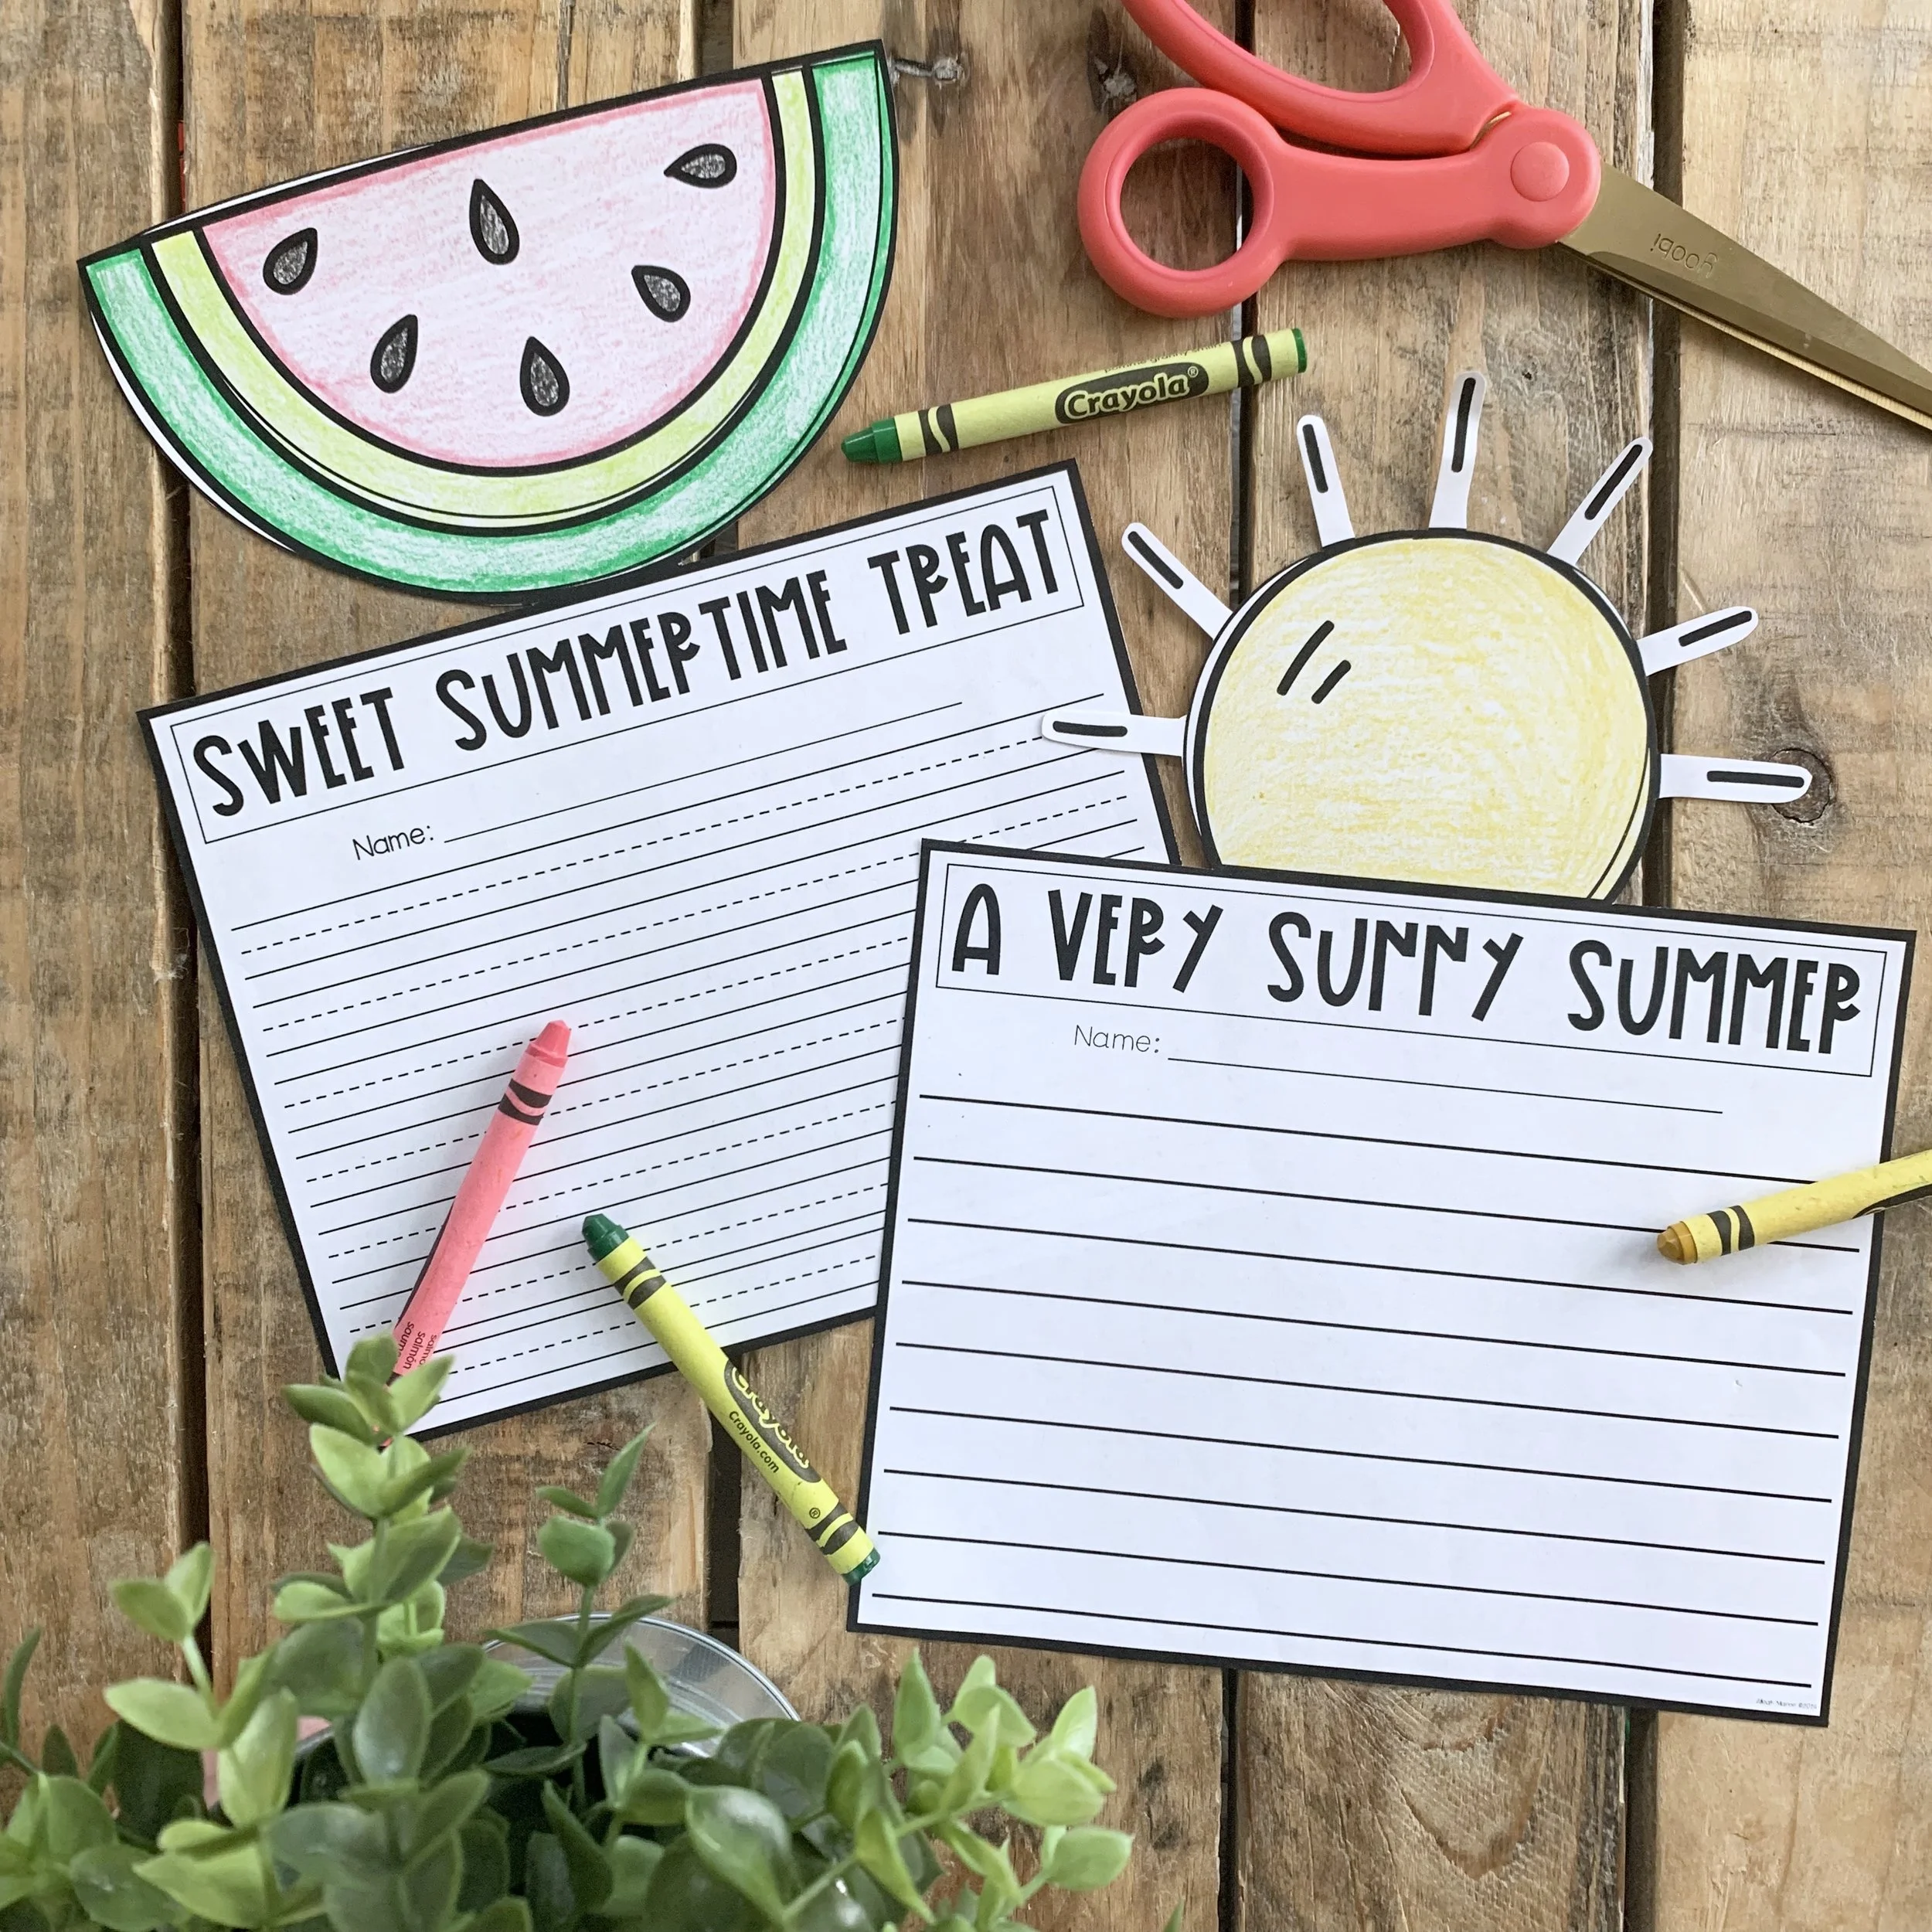 yoobi
Crayola®
SWEET SUMMERTIME TREAT
Name:
A VERY SUNNY SUMMER
Name:
salmón
Crayola
Crayola.com
®